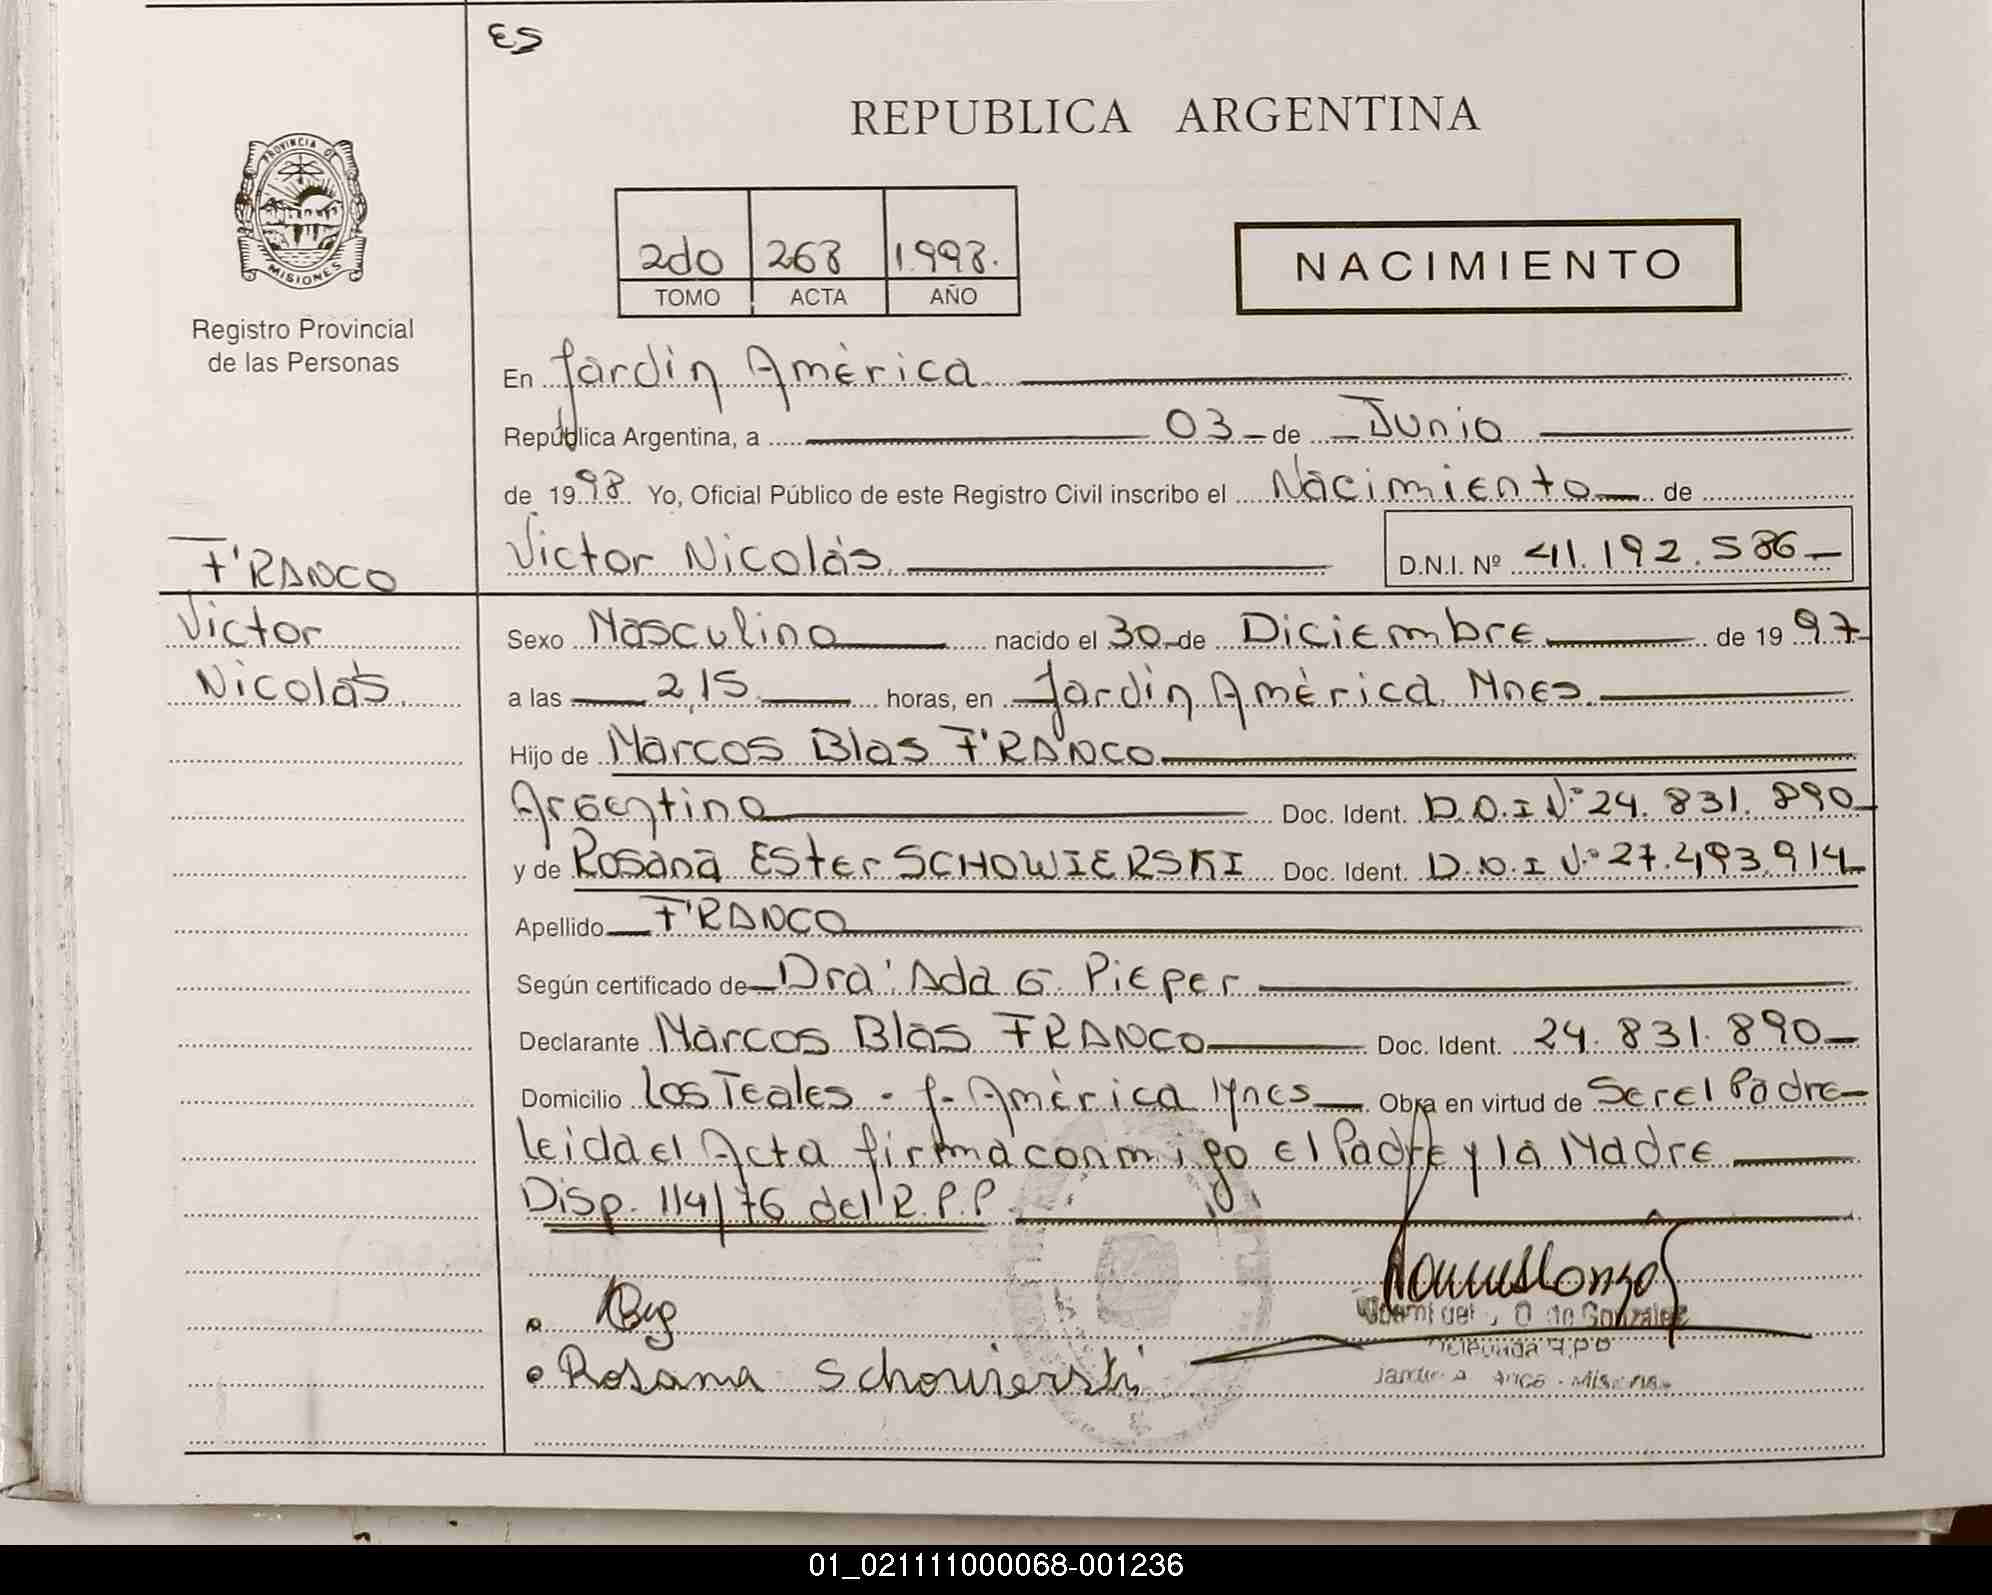 ES
REPUBLICA ARGENTINA
PROVINCIA DE
MISIONES
Registro Provincial
de las Personas
2do 268 1.998.
TOMO ACTA AÑO
NACIMIENTO
En Jardín América
República Argentina, a 03 de Junio
de 1998. Yo, Oficial Público de este Registro Civil inscribo el Nacimiento de
Victor Nicolás D.N.I. Nº 41.192.586
FRANCO
Victor
Nicolás
Sexo Masculino nacido el 30 de Diciembre de 1997
a las 2,15 horas, en Jardín América Mnes.
Hijo de Marcos Blas FRANCO
Argentino Doc. Ident. D.N.I Nº 24.831.890
y de Rosana Ester SCHOWIERSKI Doc. Ident. D.N.I Nº 27.493.914
Apellido FRANCO
Según certificado de Dra: Ada G. Pieper
Declarante Marcos Blas FRANCO Doc. Ident. 24.831.890
Domicilio Los Teales - J. América Mnes Obra en virtud de Ser el Padre
leida el Acta firma conmigo el Padre y la Madre
Disp. 114/76 del R.P.P
Rosana Schowierski
de Gonzalez
01_021111000068-001236